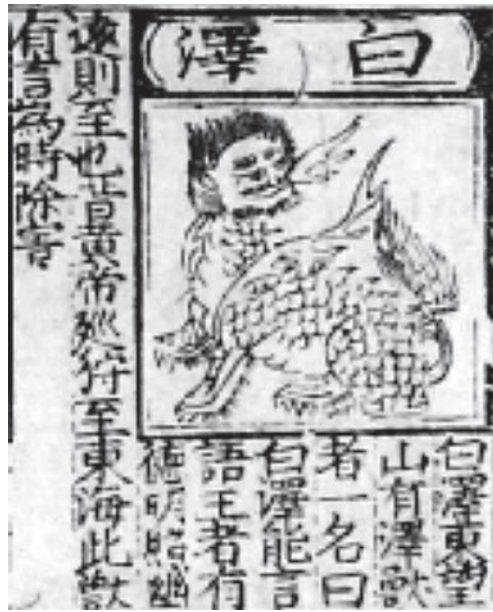 白澤
白澤東望
山有澤獸
者一名曰
白澤能言
語王者有
徳明照幽
遠則至也昔黄帝廵狩至東海此獸
有言為時除害